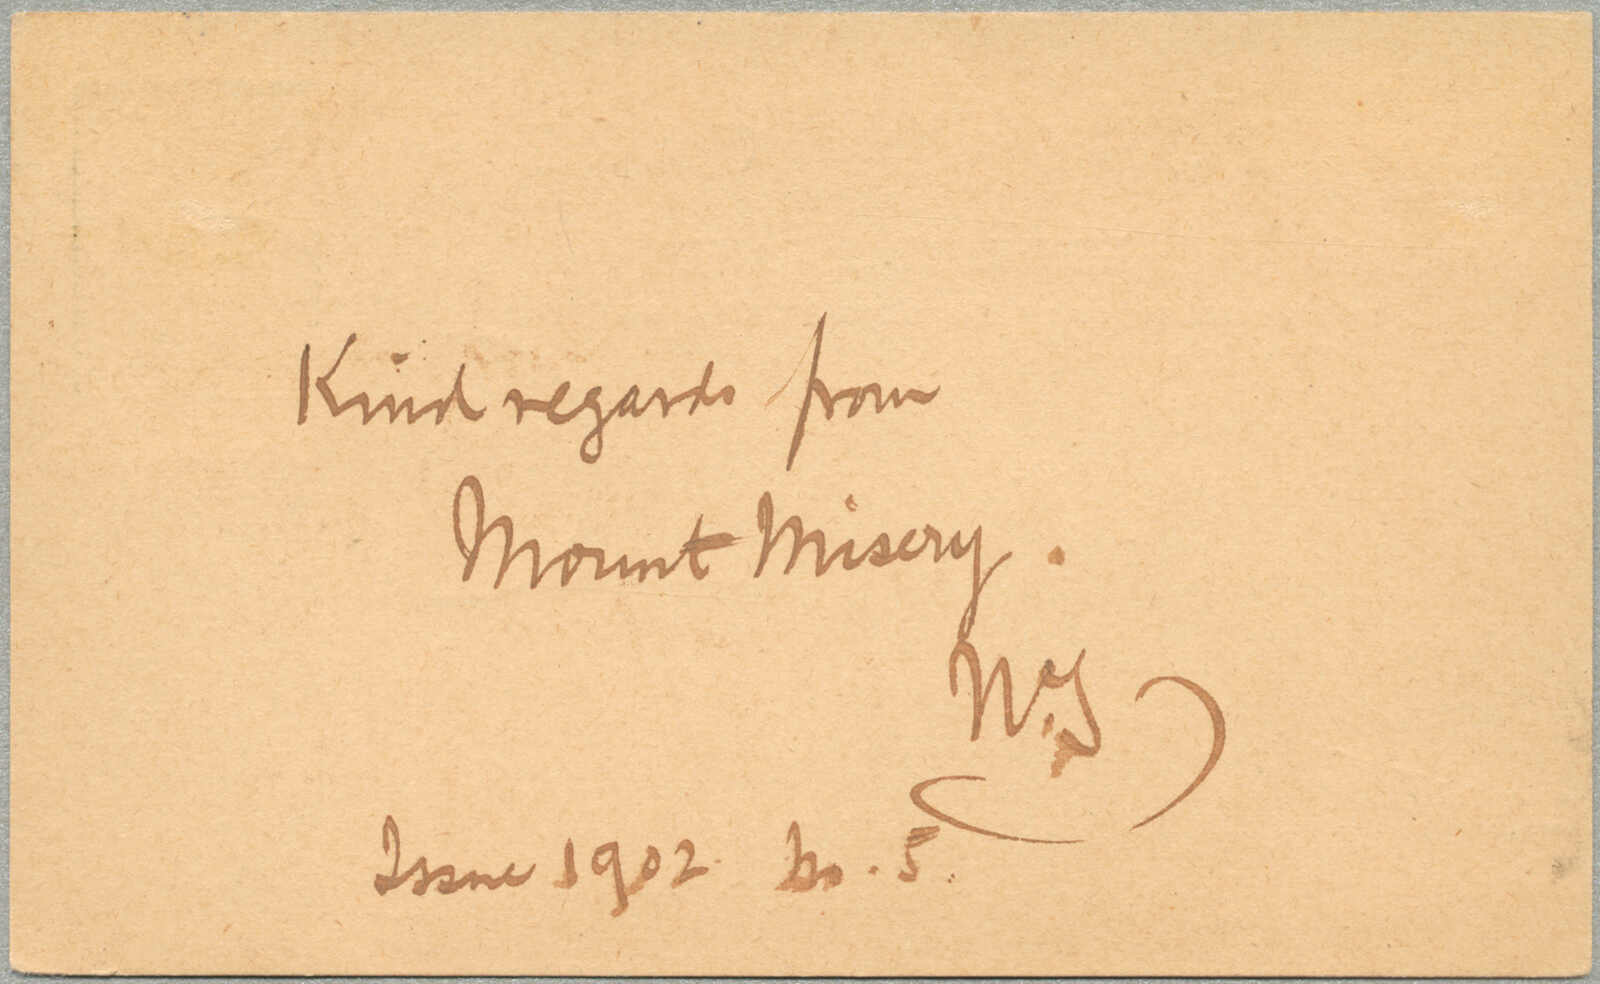 Kind regards from
Mount Misery.
Issue 1902. No. 5.